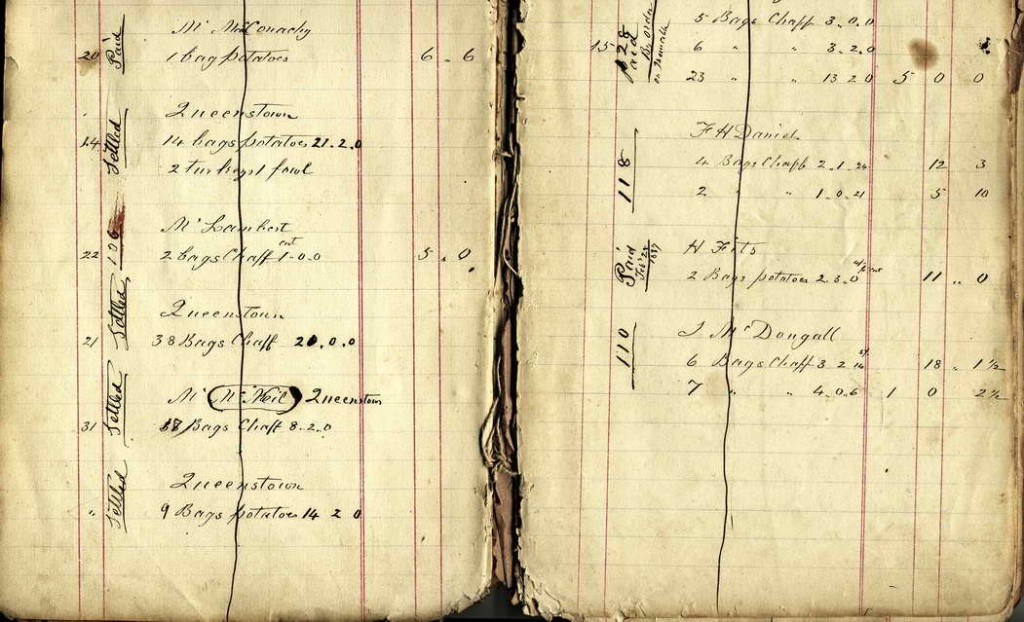 Mr McConachy
20 Paid 1 bag potatoes 6 . 6
Queenstown
24 Settled 14 bags potatoes 21.2.0
2 turkeys 1 fowl
Mr Lambert
22 106 2 bags Chaff cwt 1-0-0 5 . 0
Queenstown
21 Settled 38 Bags Chaff 20.0.0
Mr McNeil Queenstown
31 Settled 17 Bags Chaff 8.2.0
Queenstown
" Settled 9 Bags potatoes 14 2 0
5 Bags Chaff 3.0.0
15 128 Paid By order 6 " " 3.2.0
23 " " 13 2 0 5 0 0
F H Daniel
118 4 Bags Chaff 2.1.24 12 3
2 " " 1.0.21 5 10
H Fits
Paid Feby 2 1887 2 Bags potatoes 2.3.0 11 " 0
J McDongall
110 6 Bags Chaff 3 2 14 18 " 1½
7 " " 4.0.6 1 0 2½